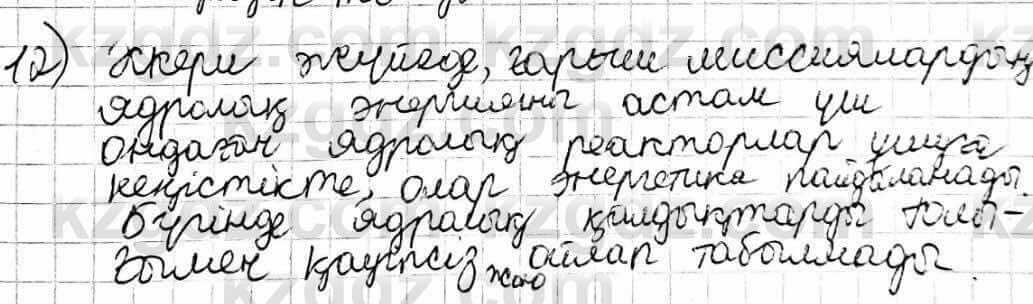 12) Әкери жүйеде, ғарыш миссиялардың
ядролық энергияны астам үш
ондаған ядролық реакторлар ұшуға
кеңістікте, олар энергетика пайдаланады
Бүгінде ядралық қалдықтарды толы-
ғымен қауіпсіз жою ойлап табылмады